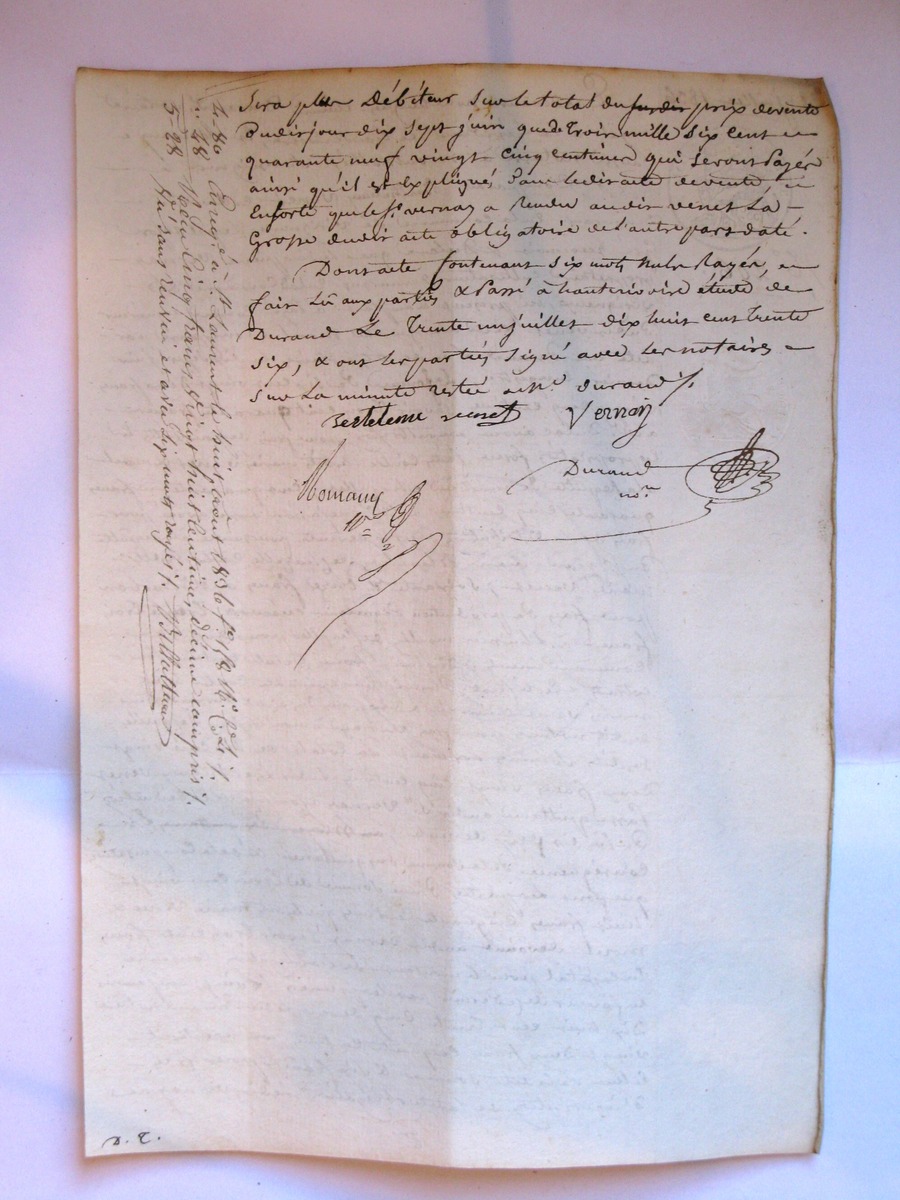 Sera plus débiteur sur le total du susdit prix de vente
Dudit jour dix sept juin que de trois mille six cent
quarante neuf vingt cinq centimes qui seront payés
ainsi qu'il est expliqué dans ledit acte de vente, en
Ensorte que le Sr. vernay a rendu audit venet La
Grosse dudit acte obligatoire de l'autre part daté.
Dont acte Contenant six mots nuls rayés, et
fait Lu aux parties & Passé à hauterivoire étude de
Durand Le Trente un juillet dix huit cent trente
six, & ont les parties signé avec les notaires
sur La minute restée à Me. durand ./.
venet Vernay
Durand
nore
Romany
Nre
4. 80 Enregé. à St Laurent le huit août 1836 fo. 158 Ro. Ce. 4 ./.
". 48 Reçu Cinq francs vingt huit centimes, décime compris ./.
5. 28 sans renvoi et avec six mots rayés ./.
D. T.